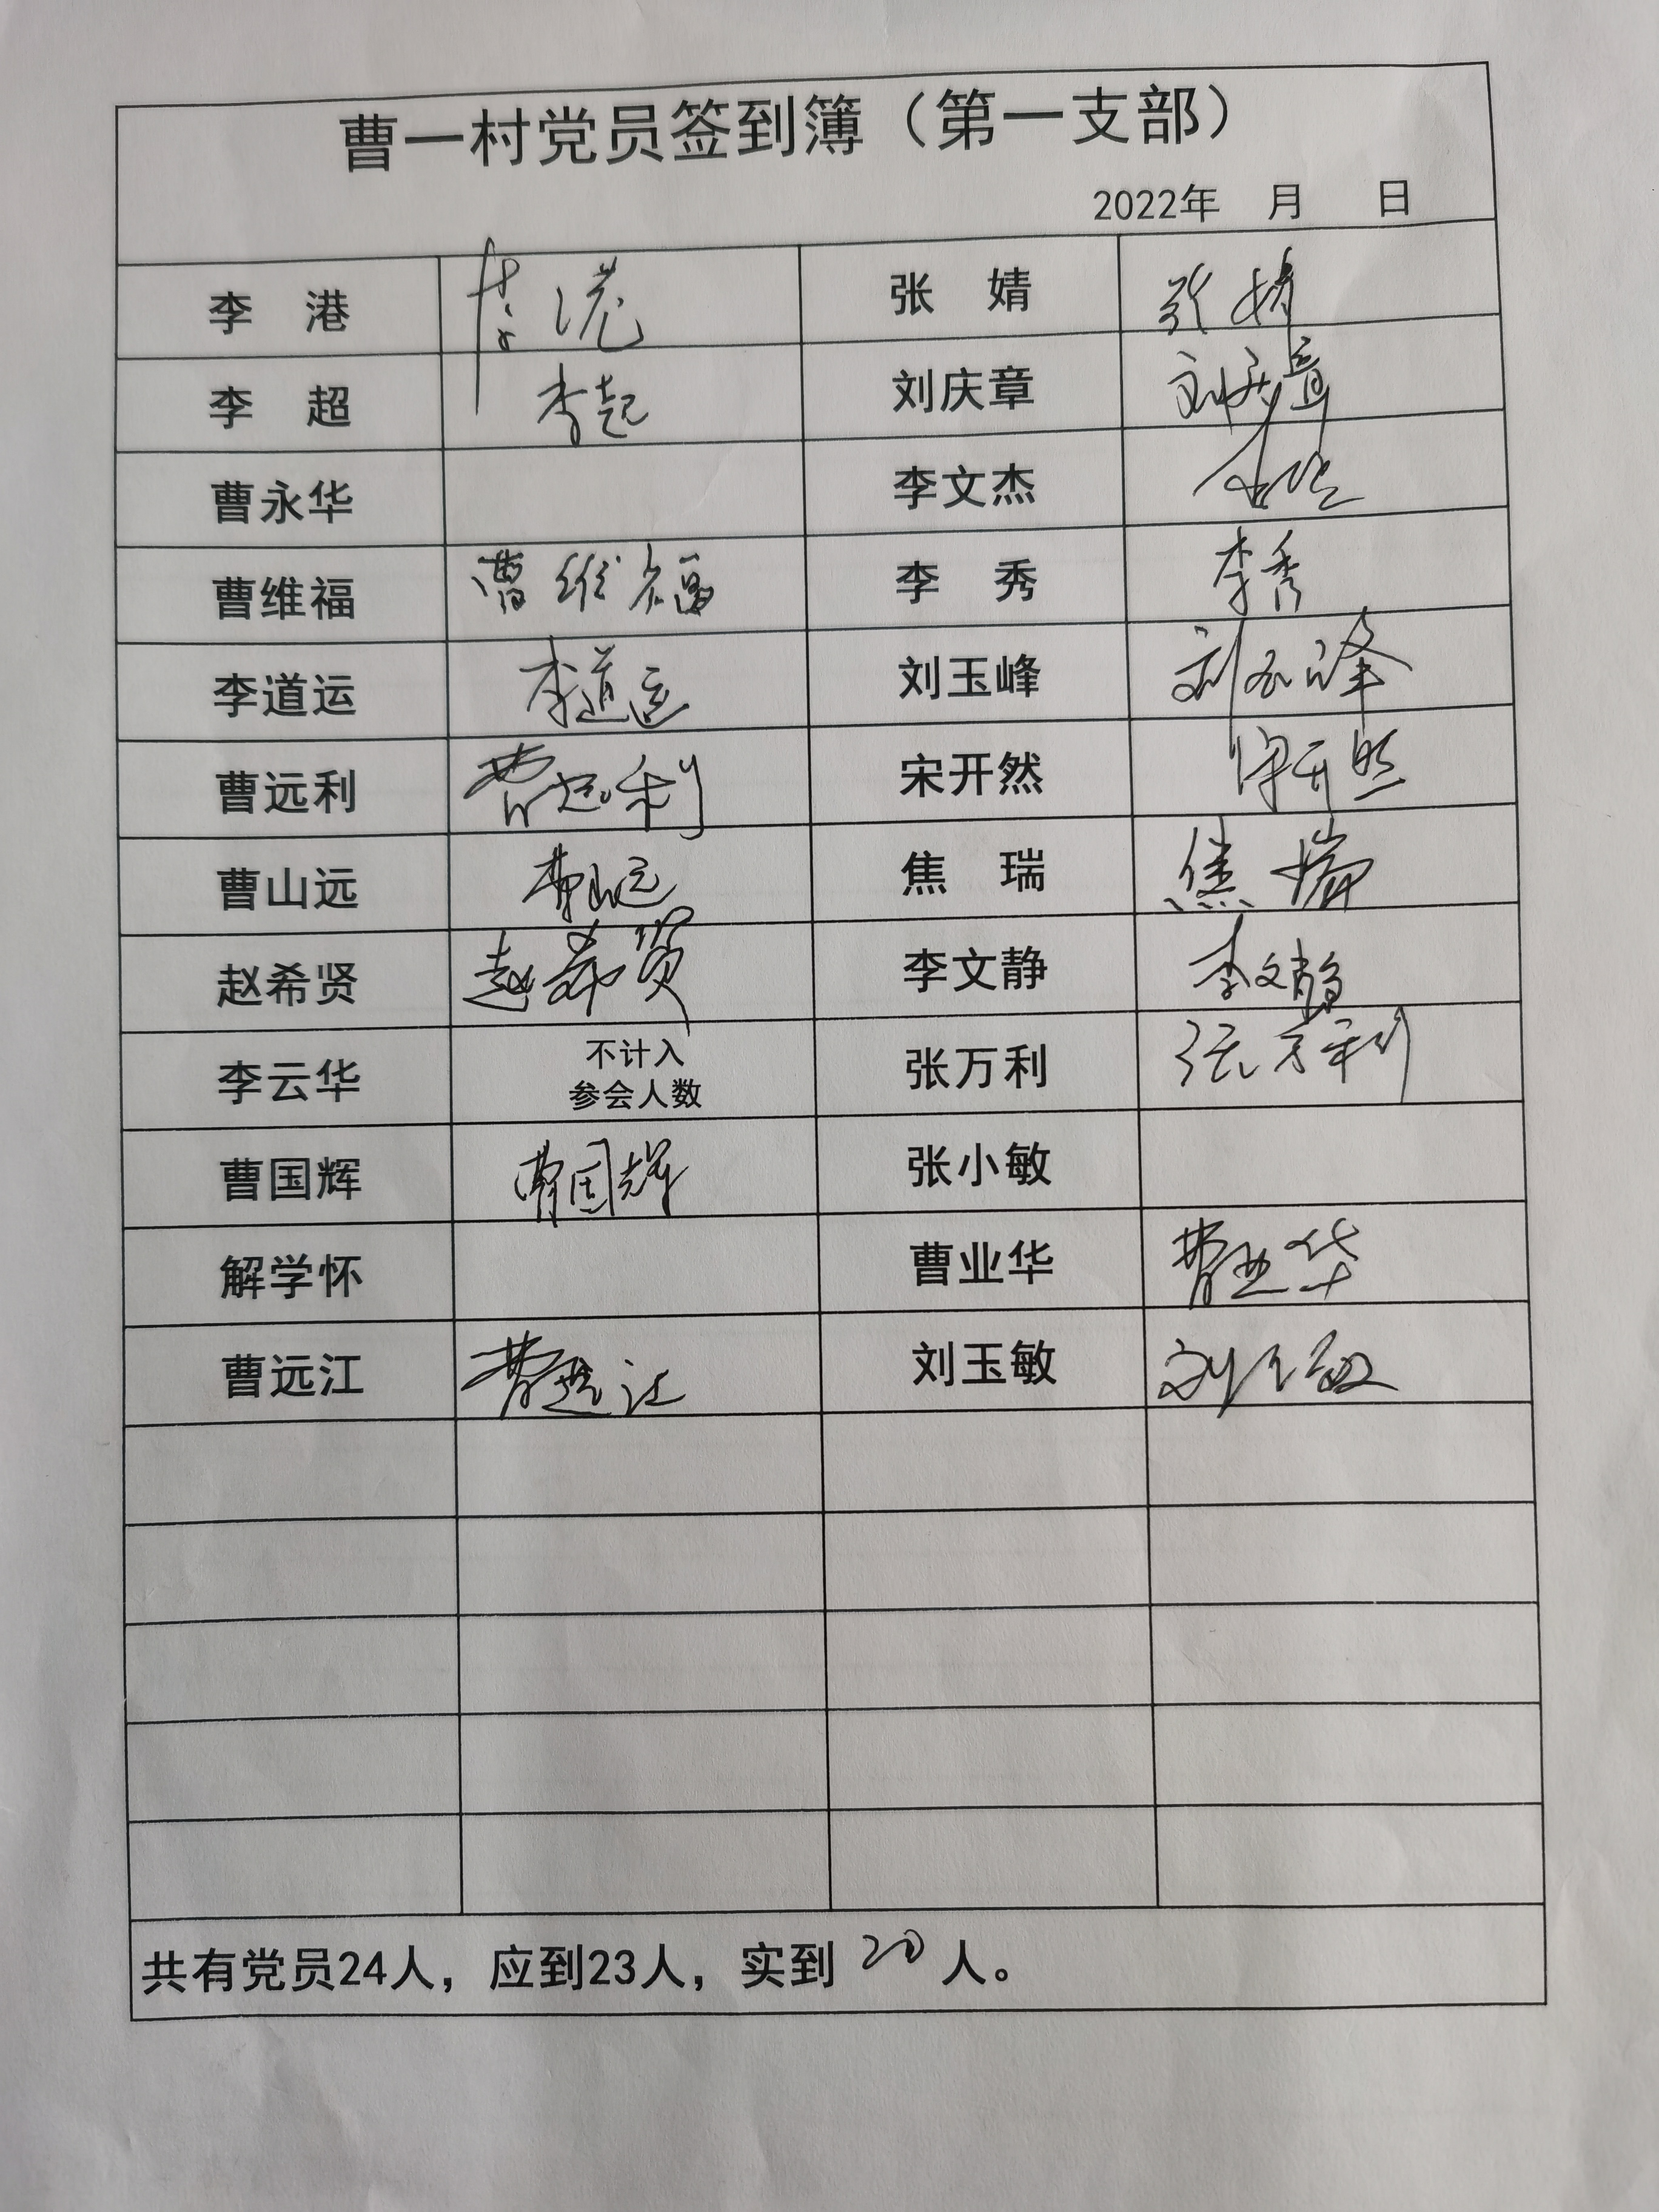 曹一村党员签到簿（第一支部）
2022年 月 日
李 港 李港 张 婧 张婧
李 超 李超 刘庆章 刘庆章
曹永华 李文杰
曹维福 曹维福 李 秀 李秀
李道运 李道运 刘玉峰 刘玉峰
曹远利 曹远利 宋开然 宋开然
曹山远 曹山远 焦 瑞 焦瑞
赵希贤 赵希贤 李文静 李文静
李云华 不计入
参会人数 张万利 张万利
曹国辉 曹国辉 张小敏
解学怀 曹业华 曹业华
曹远江 曹远江 刘玉敏 刘玉敏
共有党员24人，应到23人，实到 20 人。